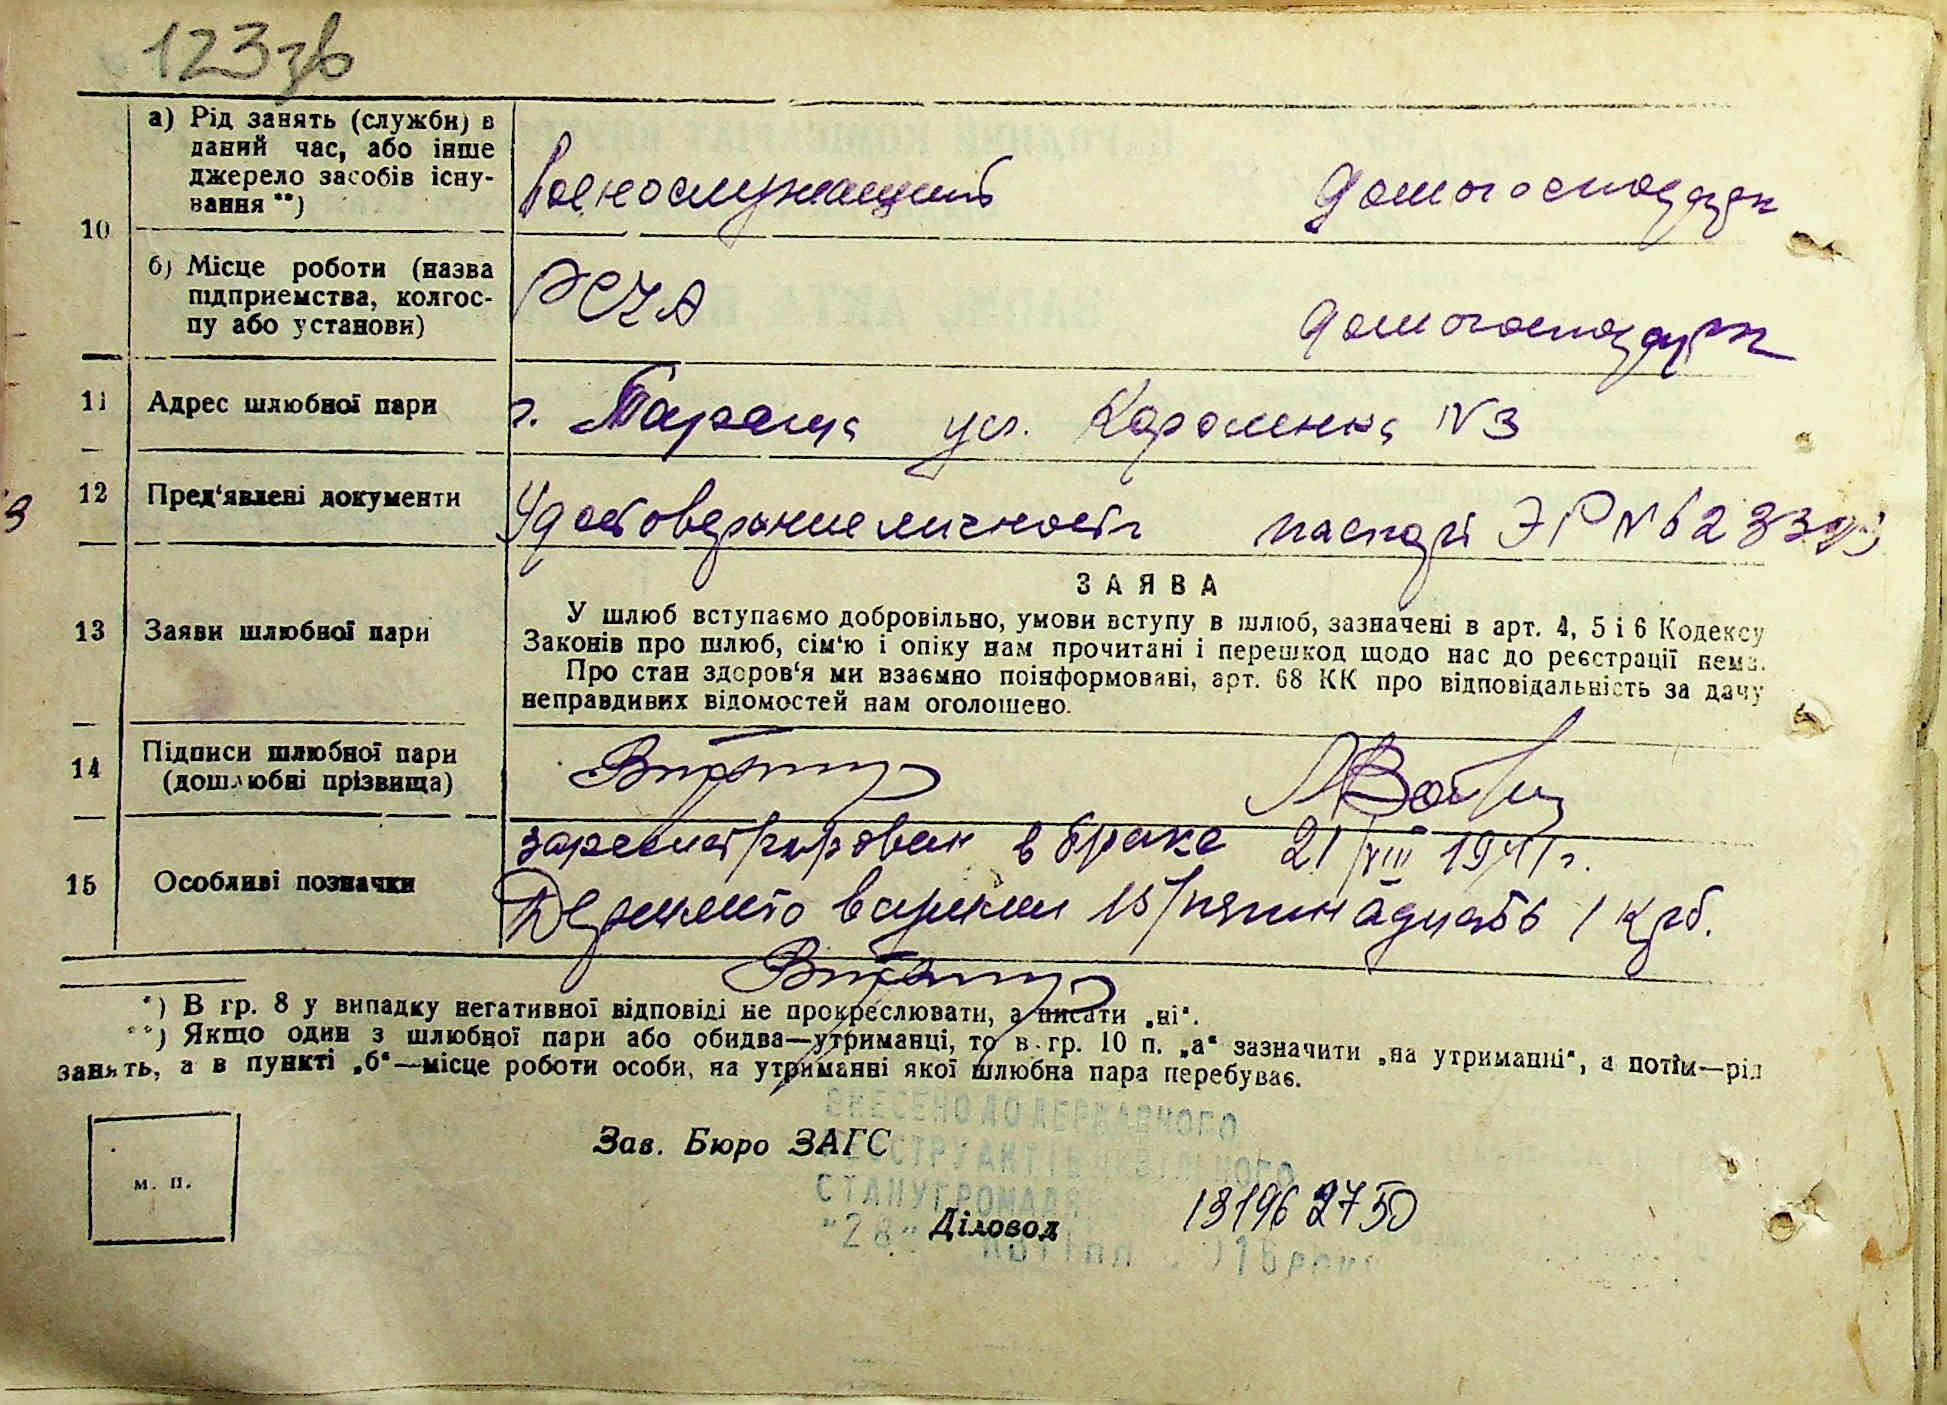 123зв
10
а) Рід занять (служби) в
даний час, або інше
джерело засобів існу-
вання **)
военослужащий домогосподарк
б) Місце роботи (назва
підприємства, колгос-
пу або установи)
РСЧА домогосподарк
11 Адрес шлюбної пари г. Тараща ул. Короленка N 3
12 Пред‘явлені документи Удостоверение личности паспорт ЭР N 6233
ЗАЯВА
13 Заяви шлюбної пари
У шлюб вступаємо добровільно, умови вступу в шлюб, зазначені в арт. 4, 5 і 6 Кодексу
Законів про шлюб, сім‘ю і опіку нам прочитані і перешкод щодо нас до реєстрації нема.
Про стан здоров‘я ми взаємно поінформовані, арт. 68 КК про відповідальність за дачу
неправдивих відомостей нам оголошено.
14 Підписи шлюбної пари
(дошлюбні прізвища)
зарегистрирован в браке 21/VIII 1941 г.
15 Особливі позначки
15/пятнадцать/ крб.
*) В гр. 8 у випадку негативної відповіді не прокреслювати, а писати „ні“.
**) Якщо один з шлюбної пари або обидва—утриманці, то в гр. 10 п. „а“ зазначити „на утриманні“, а потім—рід
занять, а в пункті „б“—місце роботи особи, на утриманні якої шлюбна пара перебуває.
ВНЕСЕНО ДО ДЕРЖАВНОГО
Зав. Бюро ЗАГС
РЕЄСТРУ АКТІВ ЦИВІЛЬНОГО
м. п.
СТАНУ ГРОМАДЯН
Діловод
13196 2750
"28" квітня 2016 року